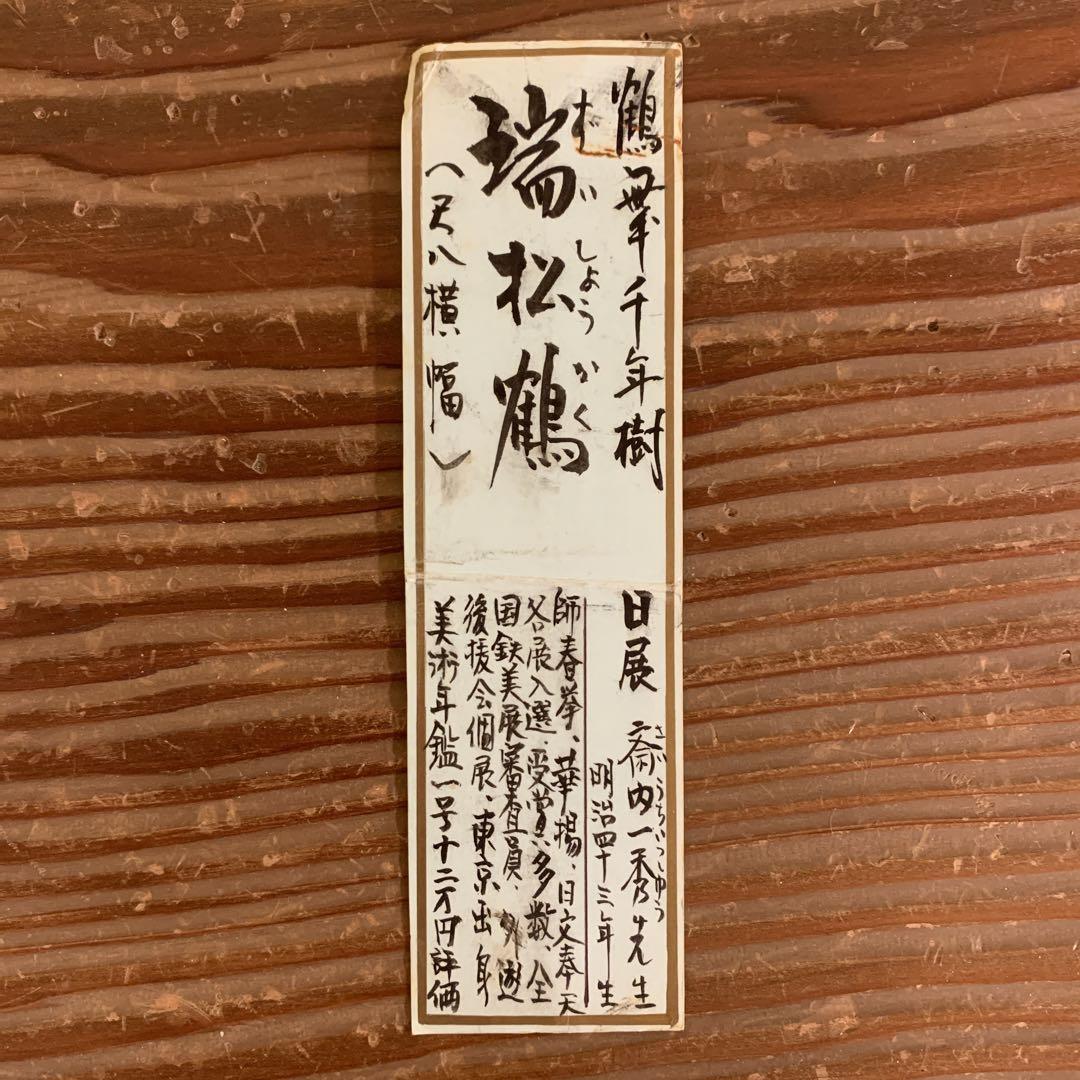 鶴翠千年樹
瑞松鶴
ずいしょうかく
(尺八横幅)
日展 斎内一秀先生
さいうちいっしゅう
明治四十三年生
師春挙、華揚、日文奉天
各展入選、受賞、多数、全
国鉄美展審査員、外遊
後援会個展、東京出身
美術年鑑一号十二万円評価